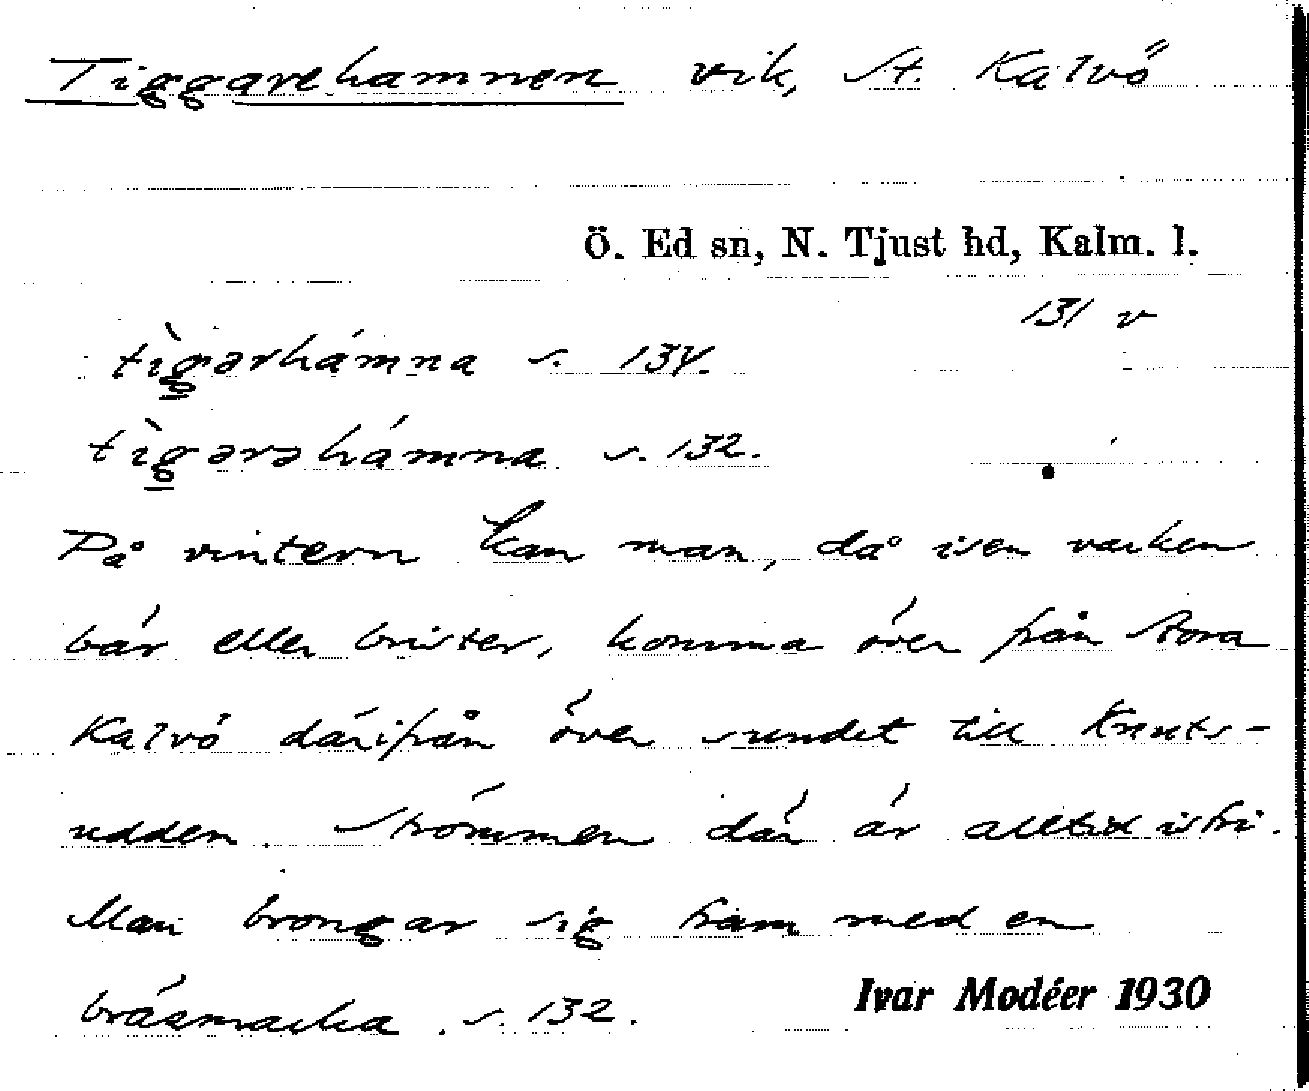 Tiggarehamnen vik, St. Kalvö
Ö. Ed sn, N. Tjust hd, Kalm. l.
131 v
tìgərhámna s. 134.
tìgərəhámna s. 132.
På vintern kan man, då isen varken
bär eller brister, komma över från Stora
Kalvö därifrån över sundet till Knuts-
udden. Strömmen där är alltid isfri.
Man brongar sig fram med en
s. 132.
Ivar Modéer 1930